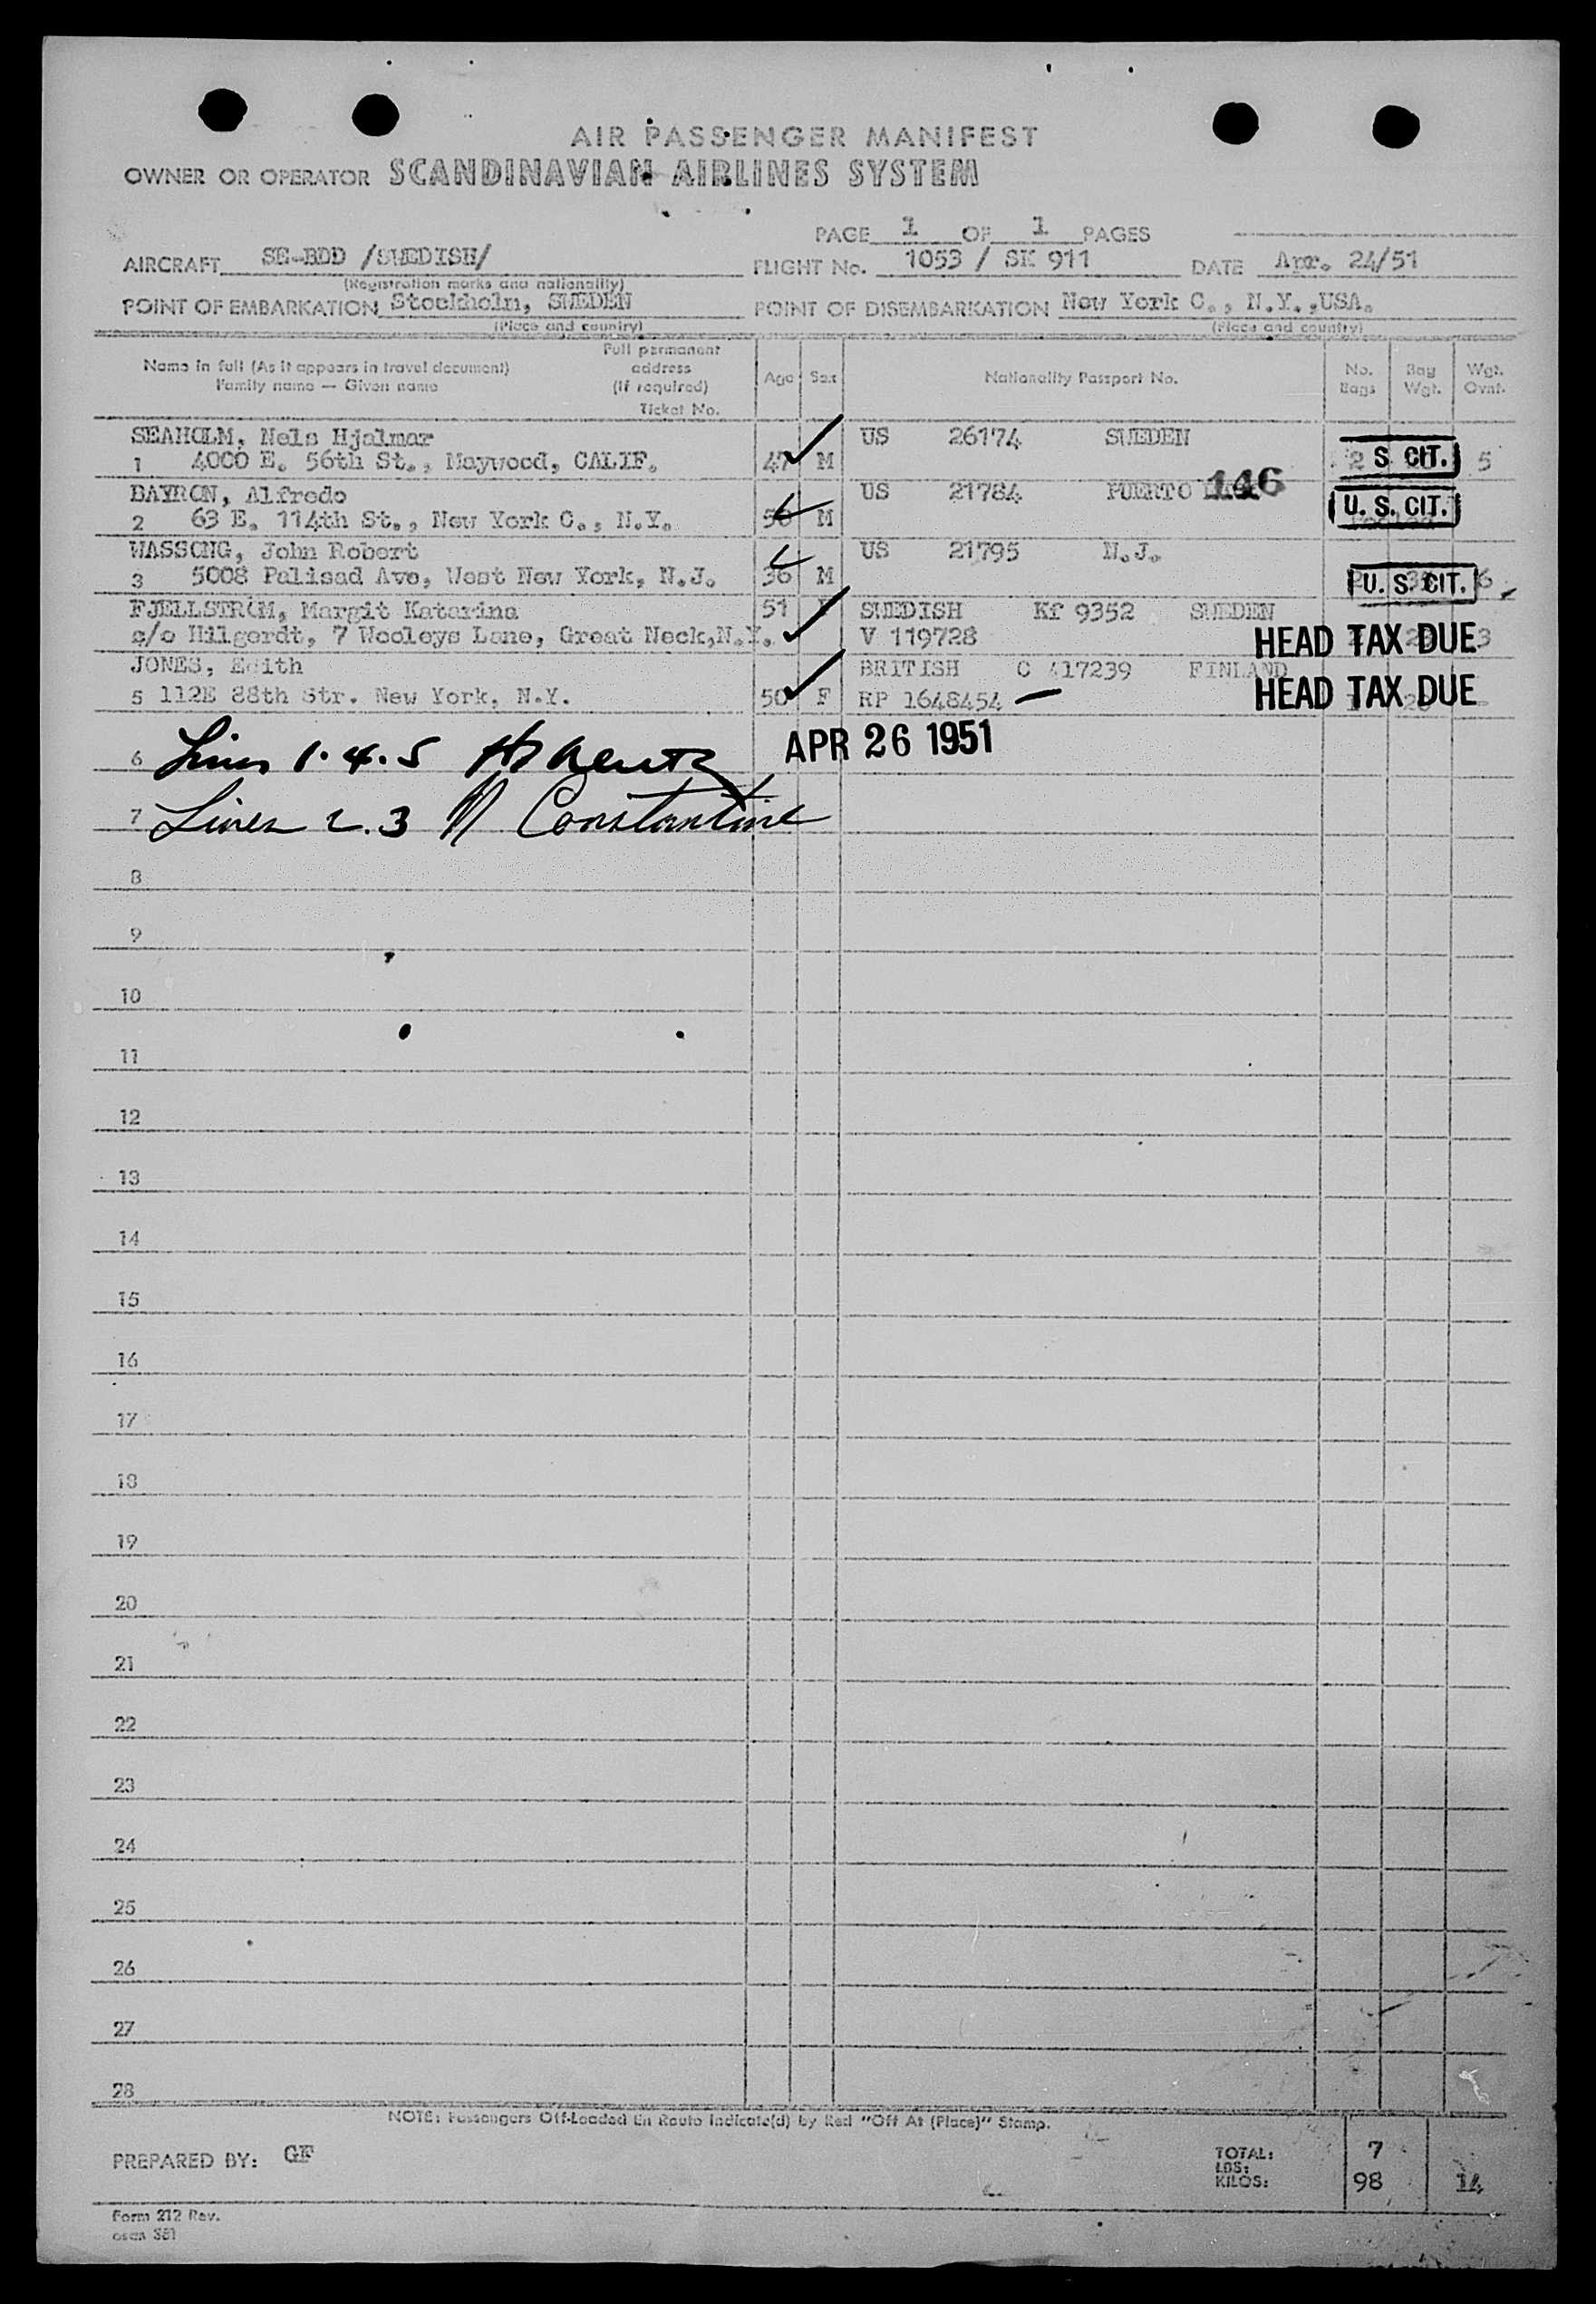 AIR PASSENGER MANIFEST
OWNER OR OPERATOR SCANDINAVIAN AIRLINES SYSTEM
PAGE 1 OF 1 PAGES
AIRCRAFT SE-BDD /SWEDISH/ FLIGHT No. 1053 / SK 911 DATE Apr. 24/51
(Registration marks and nationality)
POINT OF EMBARKATION Stockholm, SWEDEN POINT OF DISEMBARKATION New York C., N.Y.,USA.
(Place and country) (Place and country)
Name in full (As it appears in travel document) Full permanent address (If required) Age Sex Nationality Passport No. No. Bags Bag Wgt. Wgt. Ovnt.
Family name — Given name Ticket No.
SEAHOLM, Nels Hjalmar US 26174 SWEDEN
1 4000 E. 56th St., Maywood, CALIF. 47 M 2 S. CIT. 5
BAYRON, Alfredo US 21784 PUERTO 146
2 63 E. 114th St., New York C., N.Y. 50 M U. S. CIT.
WASSONG, John Robert US 21795 N.J.
3 5008 Palisad Ave, West New York, N.J. 36 M U. S. CIT. 6
FJELLSTRÖM, Margit Katarina 51 SWEDISH Kf 9352 SWEDEN
c/o Hilgerdt, 7 Wooleys Lane, Great Neck,N.Y. V 119728 HEAD TAX DUE 3
JONES, Edith BRITISH C 417239 FINLAND
5 112E 88th Str. New York, N.Y. 50 F RP 1648454 — HEAD TAX DUE
APR 26 1951
6 Lines 1.4.5
7 Lines 2.3 Constantine
8
9
10
11
12
13
14
15
16
17
18
19
20
21
22
23
24
25
26
27
28
NOTE: Passengers Off-Loaded En Route Indicate(d) by Red "Off At (Place)" Stamp.
PREPARED BY: GF TOTAL: 7
LBS:
KILOS: 98 14
Form 212 Rev.